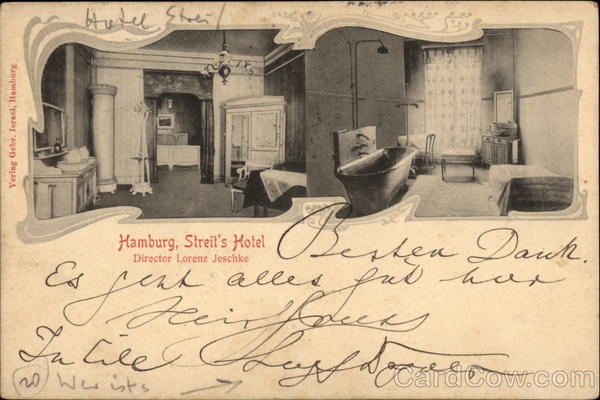 Hotel Streit
Verlag Gebr. Israel, Hamburg
Hamburg, Streit's Hotel
Director Lorenz Jeschke
Besten Dank.
Es geht alles gut hier
In Eile
20 Wer ists →
CardCow.com